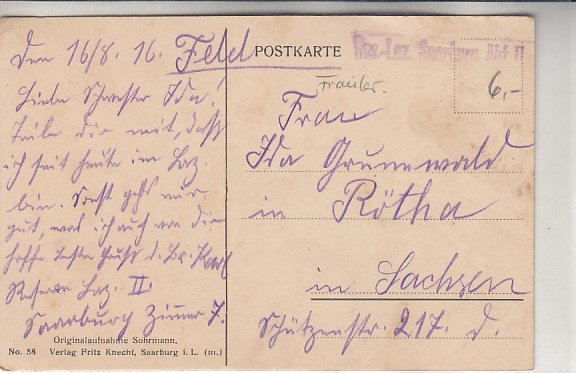 Den 16/8. 16. Feld
Liebe Schwester Ida!
Teile dir mit, daß
ich seit heute im Laz.
bin. Sonst gehts mir
gut, was ich auch von dir
hoffe beste Grüße d. Br. Karl
Reserve Laz. II.
Saarburg Zimmer 7.
Originalaufnahme Sohrmann,
No. 58 Verlag Fritz Knecht, Saarburg i. L. (m.)
POSTKARTE
Res.-Laz. Saarburg Abt II
6,-
Frau
Ida Grunewald
in Rötha
in Sachsen
Schützenstr. 217. d.